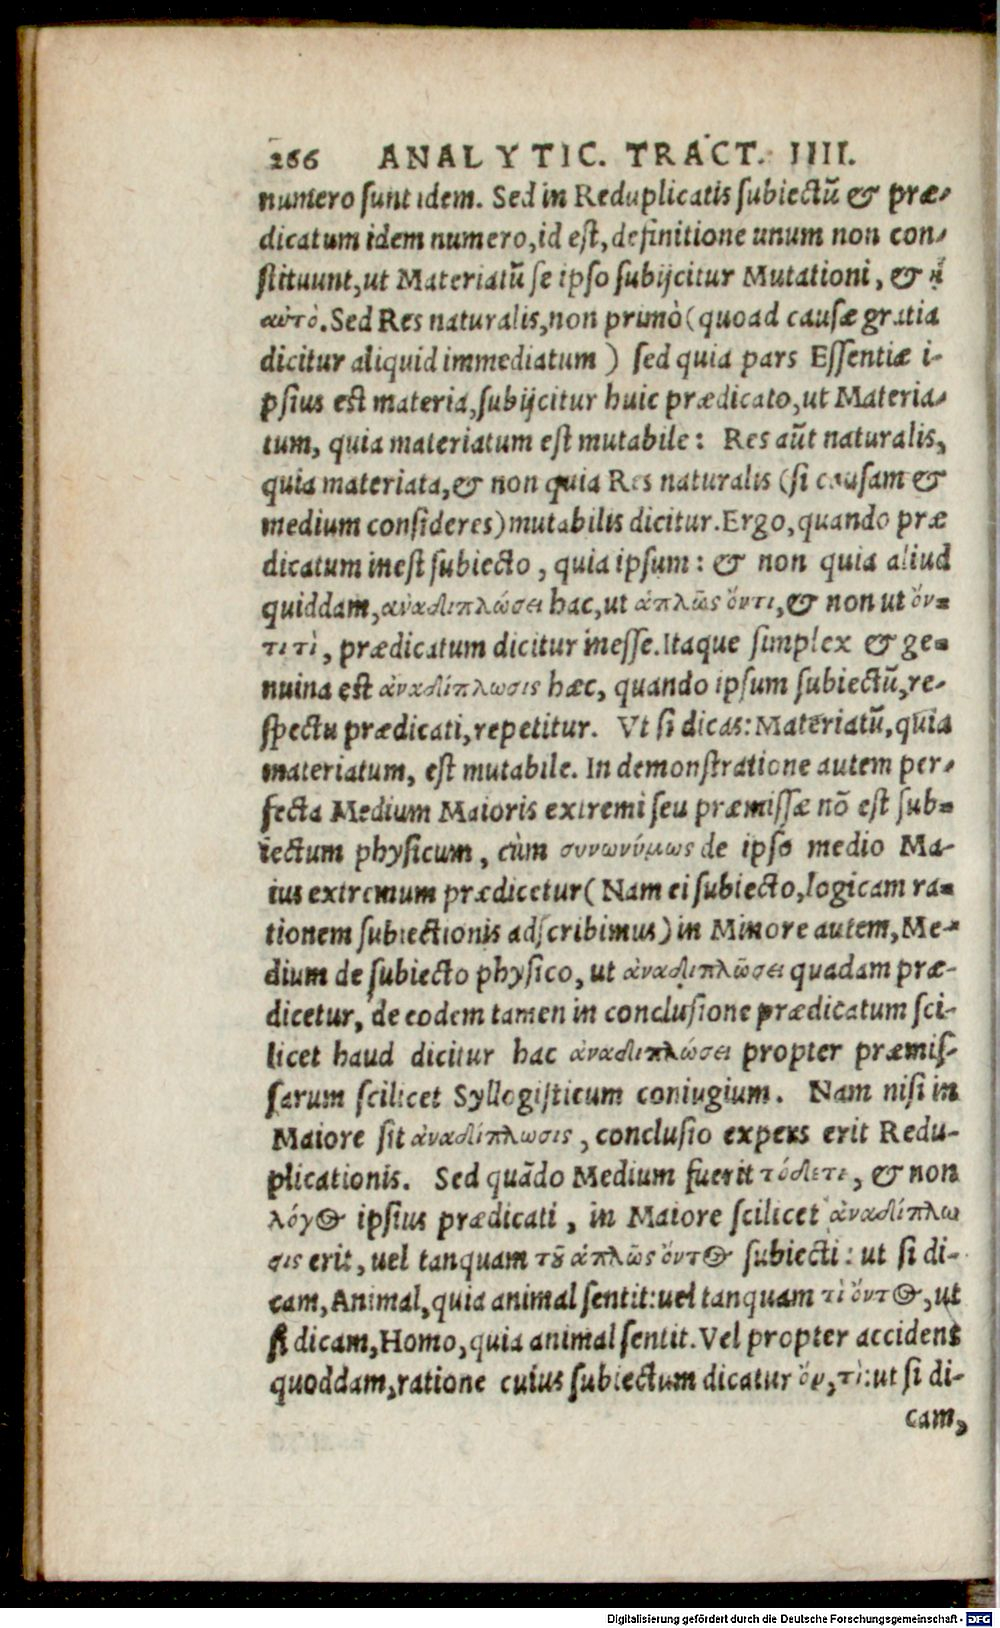 266 ANALYTIC. TRACT. IIII.
numero sunt idem. Sed in Reduplicatis subiectũ & præ-
dicatum idem numero, id est, definitione unum non con-
stituunt, ut Materiatũ se ipso subijcitur Mutationi, & ᾗ
αὐτὸ. Sed Res naturalis, non primò (quoad causæ gratia
dicitur aliquid immediatum ) sed quia pars Essentiæ i-
psius est materia, subijcitur huic prædicato, ut Materia-
tum, quia materiatum est mutabile: Res aũt naturalis,
quia materiata, & non quia Res naturalis (si causam &
medium consideres) mutabilis dicitur. Ergo, quando præ
dicatum inest subiecto, quia ipsum: & non quia aliud
quiddam, ἀναδιπλώσει hac, ut ἁπλῶς ὄντι, & non ut ὄν-
τι τὶ, prædicatum dicitur inesse. Itaque simplex & ge-
nuina est ἀναδίπλωσις hæc, quando ipsum subiectũ, re-
spectu prædicati, repetitur. Vt si dicas: Materiatũ, quia
materiatum, est mutabile. In demonstratione autem per-
fecta Medium Maioris extremi seu præmissæ nõ est sub-
iectum physicum, cùm συνωνύμως de ipso medio Ma-
ius extremum prædicetur (Nam ei subiecto, logicam ra-
tionem subiectionis adscribimus) in Minore autem, Me-
dium de subiecto physico, ut ἀναδιπλῶσει quadam præ-
dicetur, de eodem tamen in conclusione prædicatum sci-
licet haud dicitur hac ἀναδιπλώσει propter præmis-
sarum scilicet Syllogisticum coniugium. Nam nisi in
Maiore sit ἀναδίπλωσις, conclusio expers erit Redu-
plicationis. Sed quãdo Medium fuerit τόδετι, & non
λόγος ipsius prædicati, in Maiore scilicet ἀναδίπλω
σις erit, uel tanquam τȣ͂ ἁπλῶς ὄντος subiecti: ut si di-
cam, Animal, quia animal sentit: uel tanquam τὶ ὄντος, ut
si dicam, Homo, quia animal sentit. Vel propter accidens
quoddam, ratione cuius subiectum dicatur ὄν, τὶ: ut si di-
cam,
Digitalisierung gefördert durch die Deutsche Forschungsgemeinschaft - DFG